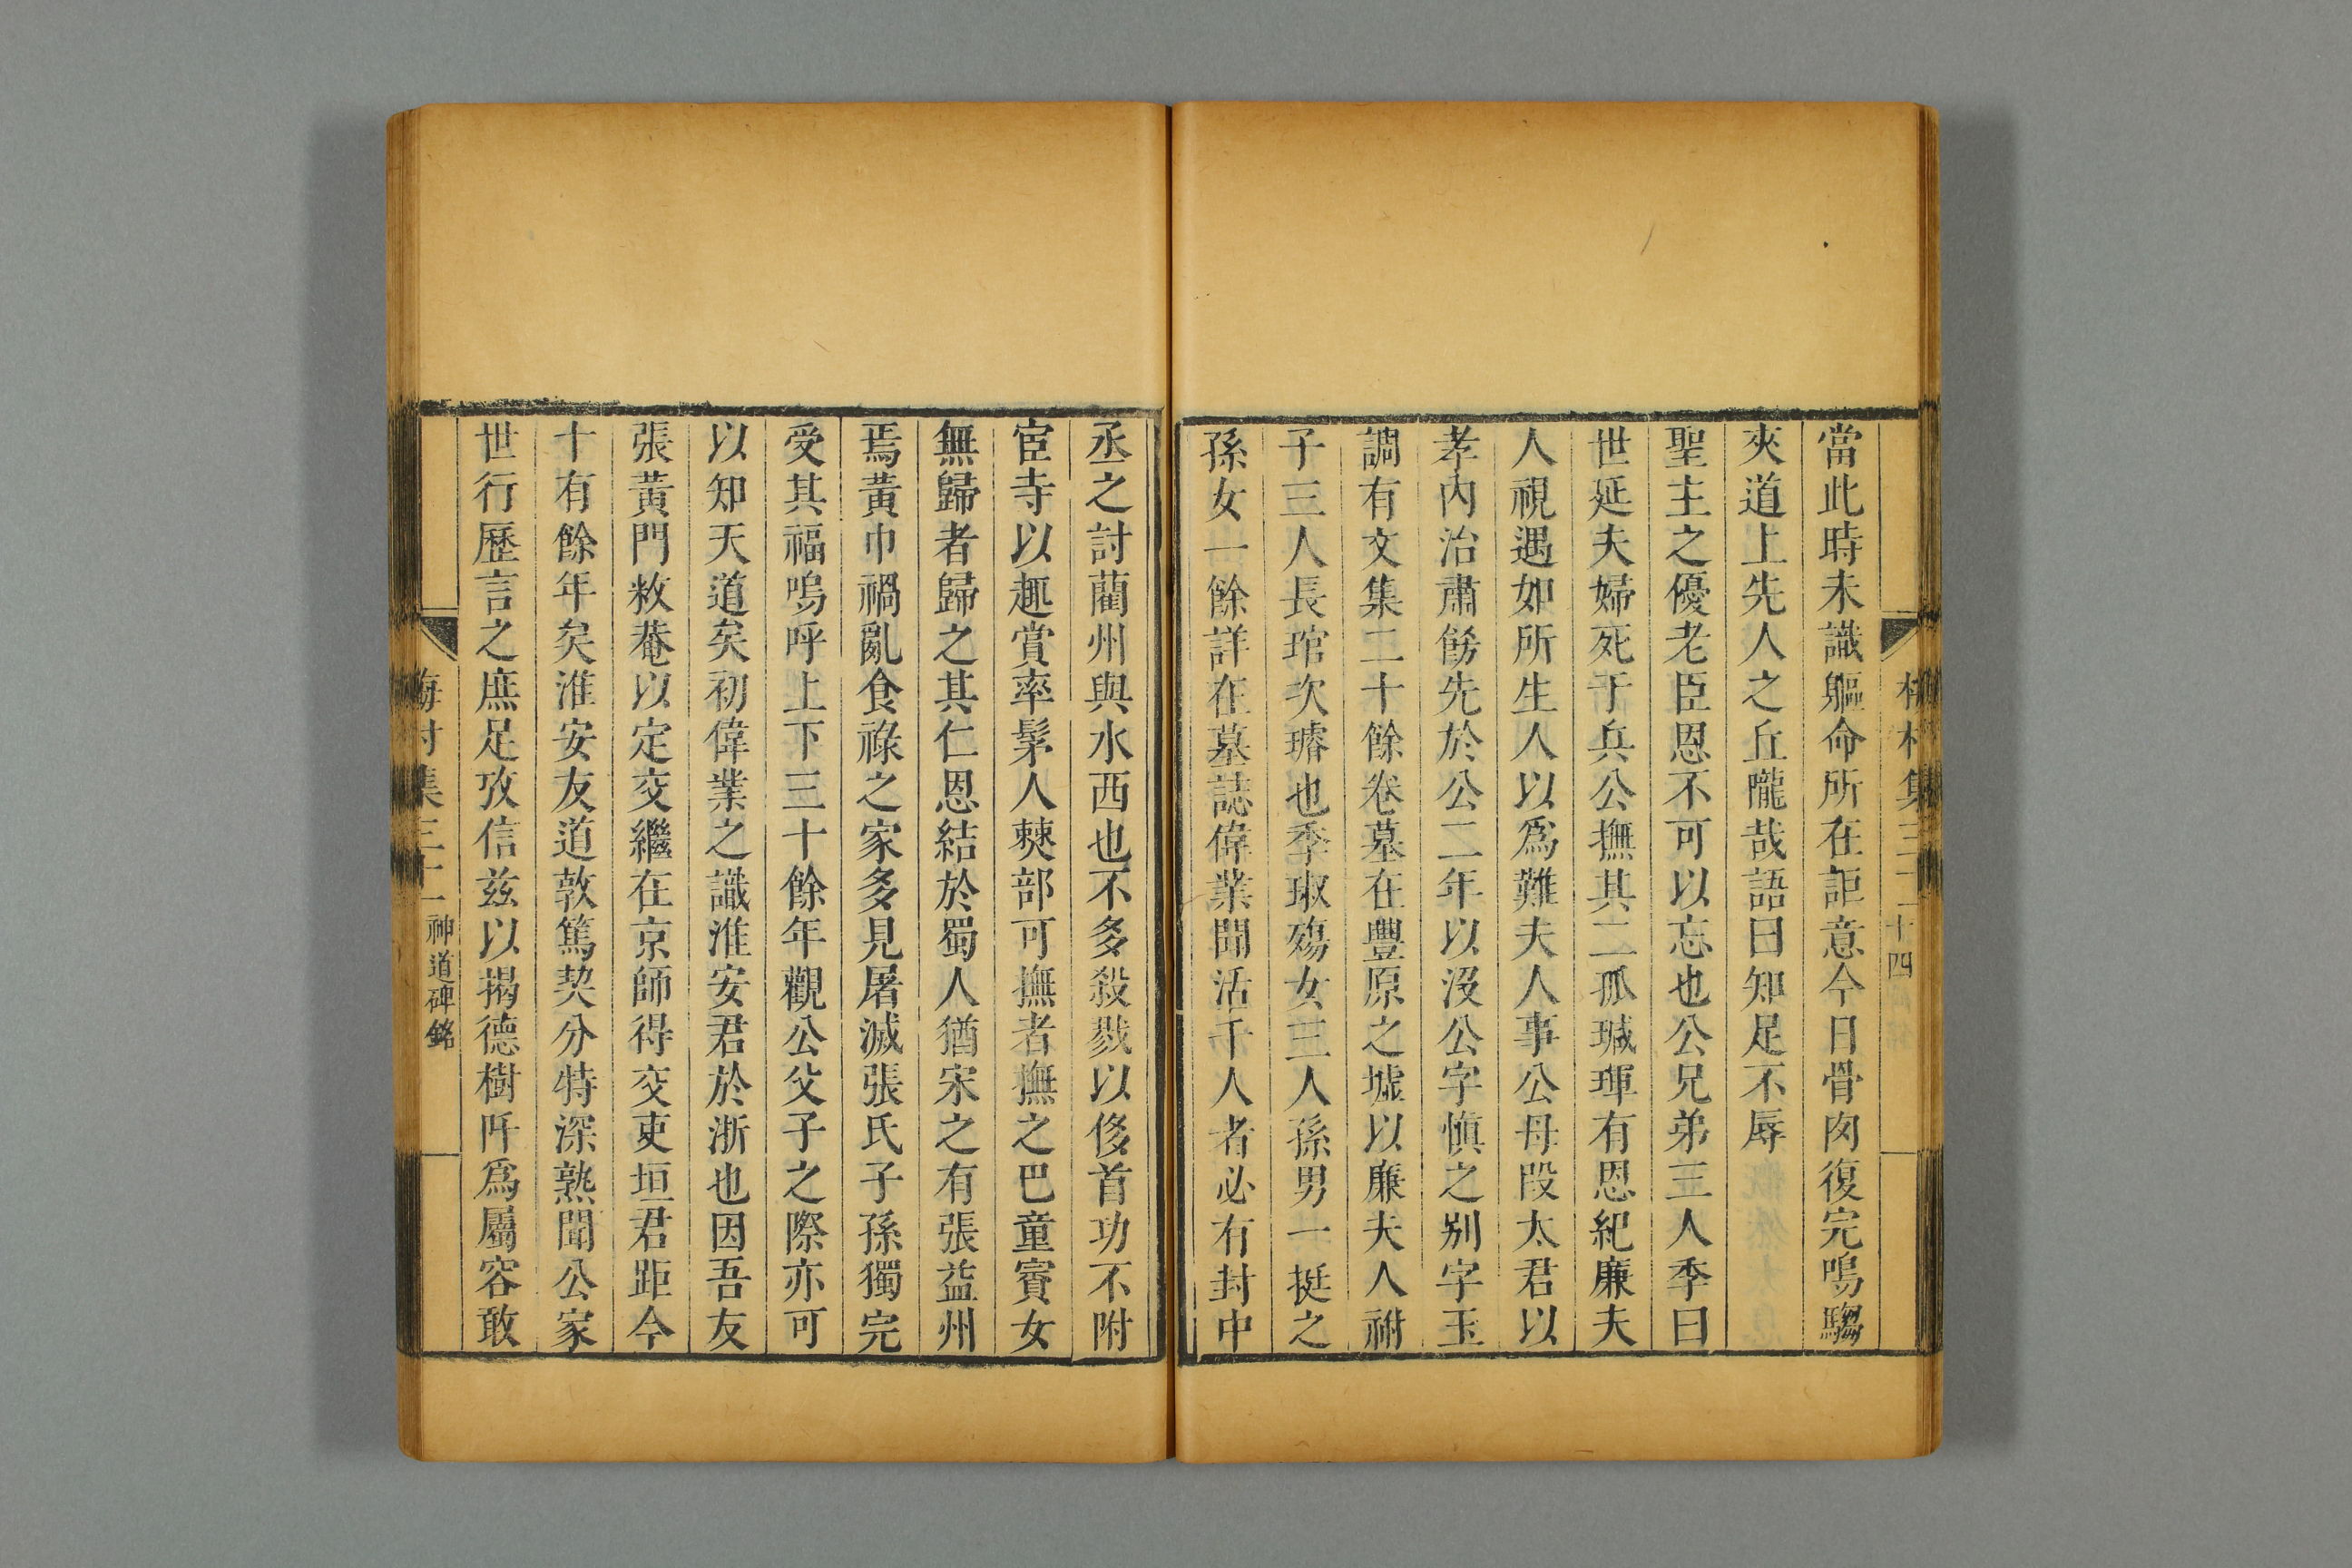 當此時未識軀命所在詎意今日骨肉復完鳴騶
夾道上先人之丘隴哉語曰知足不辱
聖主之優老臣恩不可以忘也公兄弟三人季曰
世延夫婦死于兵公撫其二孤瑊琿有恩紀廉夫
人視遇如所生人以爲難夫人事公母段太君以
孝內治肅餝先於公二年以沒公字愼之別字玉
調有文集二十餘卷墓在豐原之墟以廉夫人祔
子三人長琯次璿也季琡殤女三人孫男一挺之
孫女一餘詳在墓誌偉業聞活千人者必有封中
丞之討藺州與水西也不多殺戮以侈首功不附
宦寺以趣賞率髳人僰部可撫者撫之巴童賨女
無歸者歸之其仁恩結於蜀人猶宋之有張益州
焉黃巾禍亂食祿之家多見屠滅張氏子孫獨完
受其福嗚呼上下三十餘年觀公父子之際亦可
以知天道矣初偉業之識淮安君於浙也因吾友
張黃門敉菴以定交繼在京師得交吏垣君距今
十有餘年矣淮安友道敦篤契分特深熟聞公家
世行歷言之庶足攷信兹以揭德樹阡爲屬容敢
梅村集三十一 神道碑銘
十四